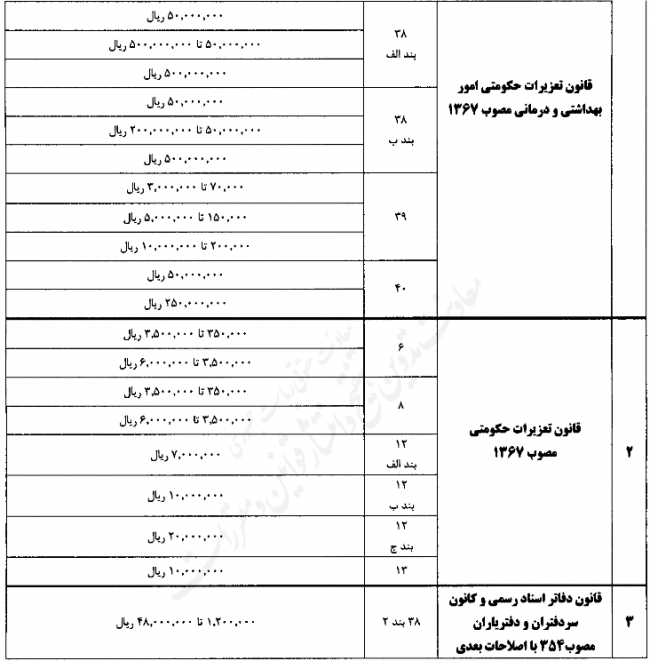 قانون تعزیرات حکومتی امور
بهداشتی و درمانی مصوب ۱۳۶۷
۳۸
بند الف
۵۰,۰۰۰,۰۰۰ ریال
۵۰,۰۰۰,۰۰۰ تا ۵۰۰,۰۰۰,۰۰۰ ریال
۵۰۰,۰۰۰,۰۰۰ ریال
۳۸
بند ب
۵۰,۰۰۰,۰۰۰ ریال
۵۰,۰۰۰,۰۰۰ تا ۲۰۰,۰۰۰,۰۰۰ ریال
۵۰۰,۰۰۰,۰۰۰ ریال
۳۹
۷۰,۰۰۰ تا ۳,۰۰۰,۰۰۰ ریال
۱۵۰,۰۰۰ تا ۵,۰۰۰,۰۰۰ ریال
۲۰۰,۰۰۰ تا ۱۰,۰۰۰,۰۰۰ ریال
۴۰
۵۰,۰۰۰,۰۰۰ ریال
۲۵۰,۰۰۰,۰۰۰ ریال
۲
قانون تعزیرات حکومتی
مصوب ۱۳۶۷
۶
۳۵۰,۰۰۰ تا ۳,۵۰۰,۰۰۰ ریال
۳,۵۰۰,۰۰۰ تا ۶,۰۰۰,۰۰۰ ریال
۸
۳۵۰,۰۰۰ تا ۳,۵۰۰,۰۰۰ ریال
۳,۵۰۰,۰۰۰ تا ۶,۰۰۰,۰۰۰ ریال
۱۲
بند الف
۷,۰۰۰,۰۰۰ ریال
۱۲
بند ب
۱۰,۰۰۰,۰۰۰ ریال
۱۲
بند ج
۲۰,۰۰۰,۰۰۰ ریال
۱۳
۱۰,۰۰۰,۰۰۰ ریال
۳
قانون دفاتر اسناد رسمی و کانون
سردفتران و دفتریاران
مصوب ۳۵۴ با اصلاحات بعدی
۳۸ بند ۲
۱,۲۰۰,۰۰۰ تا ۴۸,۰۰۰,۰۰۰ ریال
معاونت تدوین تنقیح و انتشار قوانین و مقررات
معاونت حقوقی ریاست جمهوری